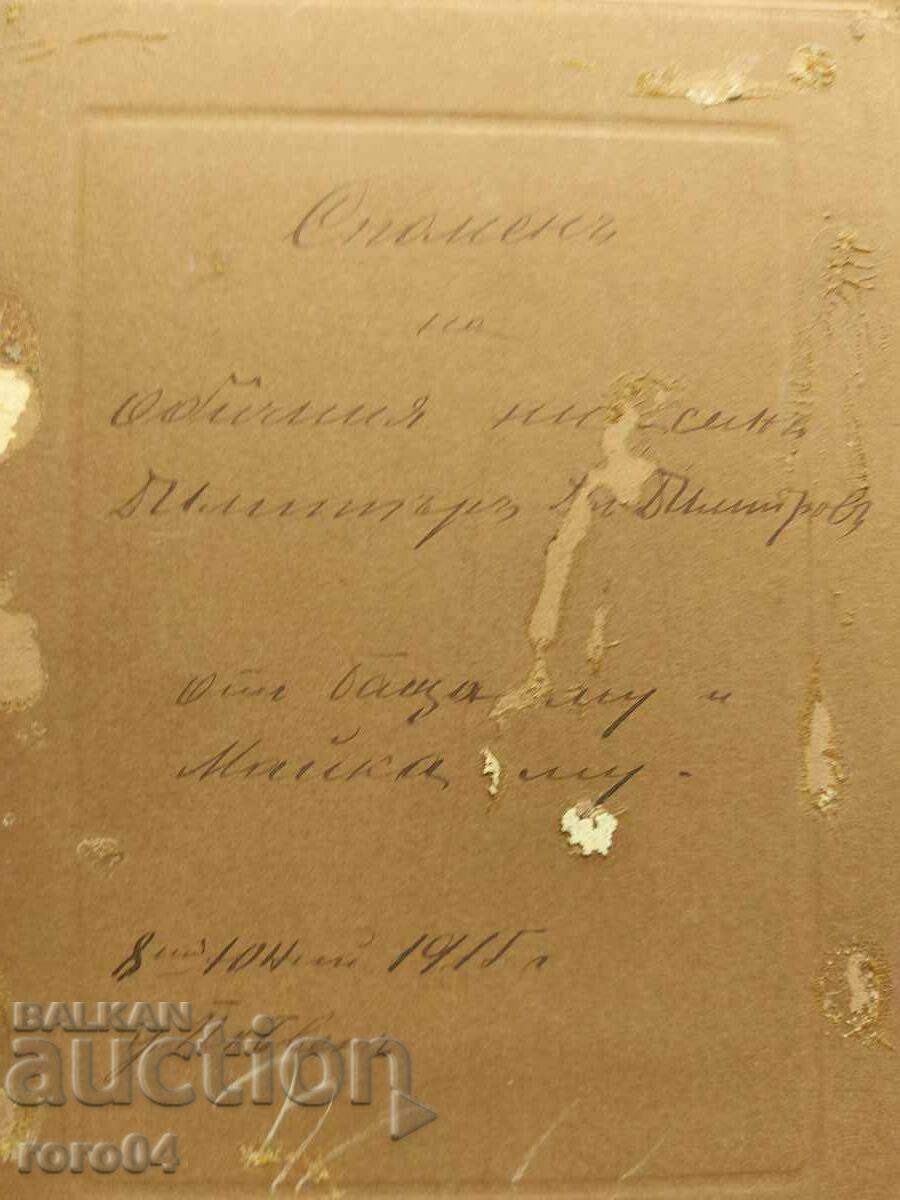 Споменъ
на
обичния ни сенъ
Димитъръ Дим Димитровъ
отъ баща му и
Майка му.
8ий Юний 1915 г
BALKAN
auction
roro04